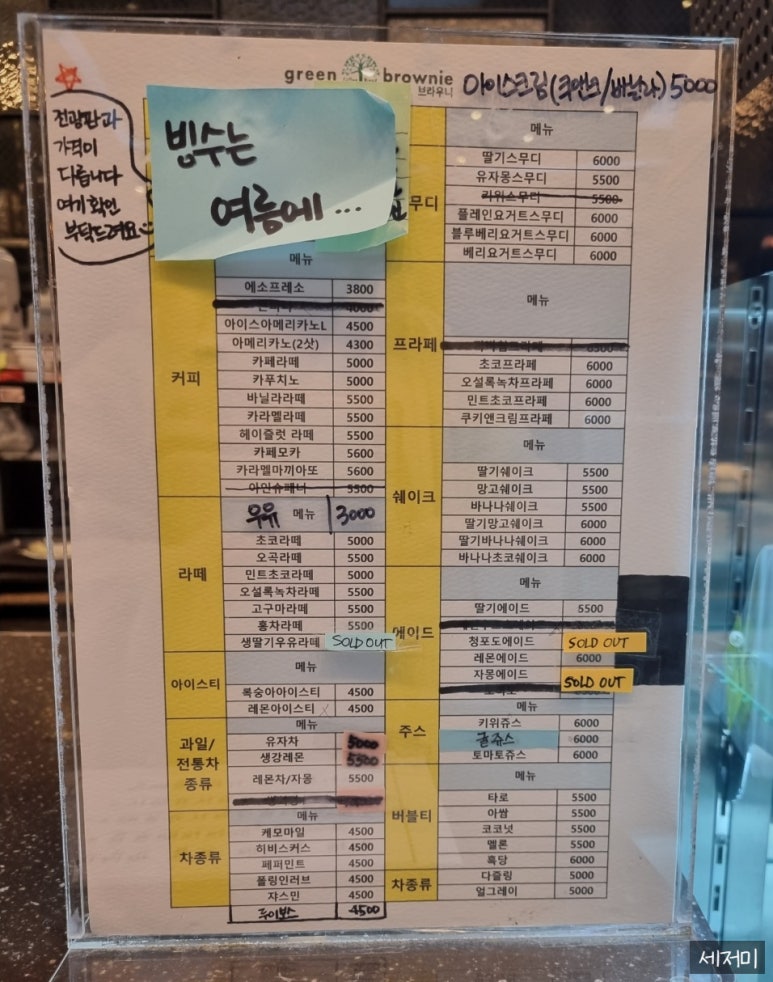 green brownie
브라우니
아이스크림(쿠앤크/바닐라) 5000
전광판과
가격이
다릅니다
여기 확인
부탁드려요
빙수는
여름에...
메뉴
커피
에소프레소 3800
아이스아메리카노L 4500
아메리카노(2샷) 4300
카페라떼 5000
카푸치노 5000
바닐라라떼 5500
카라멜라떼 5500
헤이즐럿 라떼 5500
카페모카 5600
카라멜마끼아또 5600
아인슈페너 5500
라떼
우유 메뉴 3000
초코라떼 5000
오곡라떼 5500
민트초코라떼 5000
오설록녹차라떼 5500
고구마라떼 5500
홍차라떼 5500
생딸기우유라떼 SOLD OUT
아이스티
메뉴
복숭아아이스티 4500
레몬아이스티 4500
과일/
전통차
종류
메뉴
유자차 5000
생강레몬 5500
레몬차/자몽 5500
차종류
메뉴
케모마일 4500
히비스커스 4500
페퍼민트 4500
폴링인러브 4500
쟈스민 4500
루이보스 4500
무디
메뉴
딸기스무디 6000
유자몽스무디 5500
키위스무디 5500
플레인요거트스무디 6000
블루베리요거트스무디 6000
베리요거트스무디 6000
프라페
메뉴
초코프라페 6000
오설록녹차프라페 6000
민트초코프라페 6000
쿠키앤크림프라페 6000
쉐이크
메뉴
딸기쉐이크 5500
망고쉐이크 5500
바나나쉐이크 5500
딸기망고쉐이크 6000
딸기바나나쉐이크 6000
바나나초코쉐이크 6000
에이드
메뉴
딸기에이드 5500
청포도에이드 SOLD OUT
레몬에이드 6000
자몽에이드 SOLD OUT
주스
메뉴
키위쥬스 6000
귤쥬스 6000
토마토쥬스 6000
버블티
메뉴
타로 5500
아쌈 5500
코코넛 5500
멜론 5500
흑당 6000
차종류
다즐링 5000
얼그레이 5000
세저미